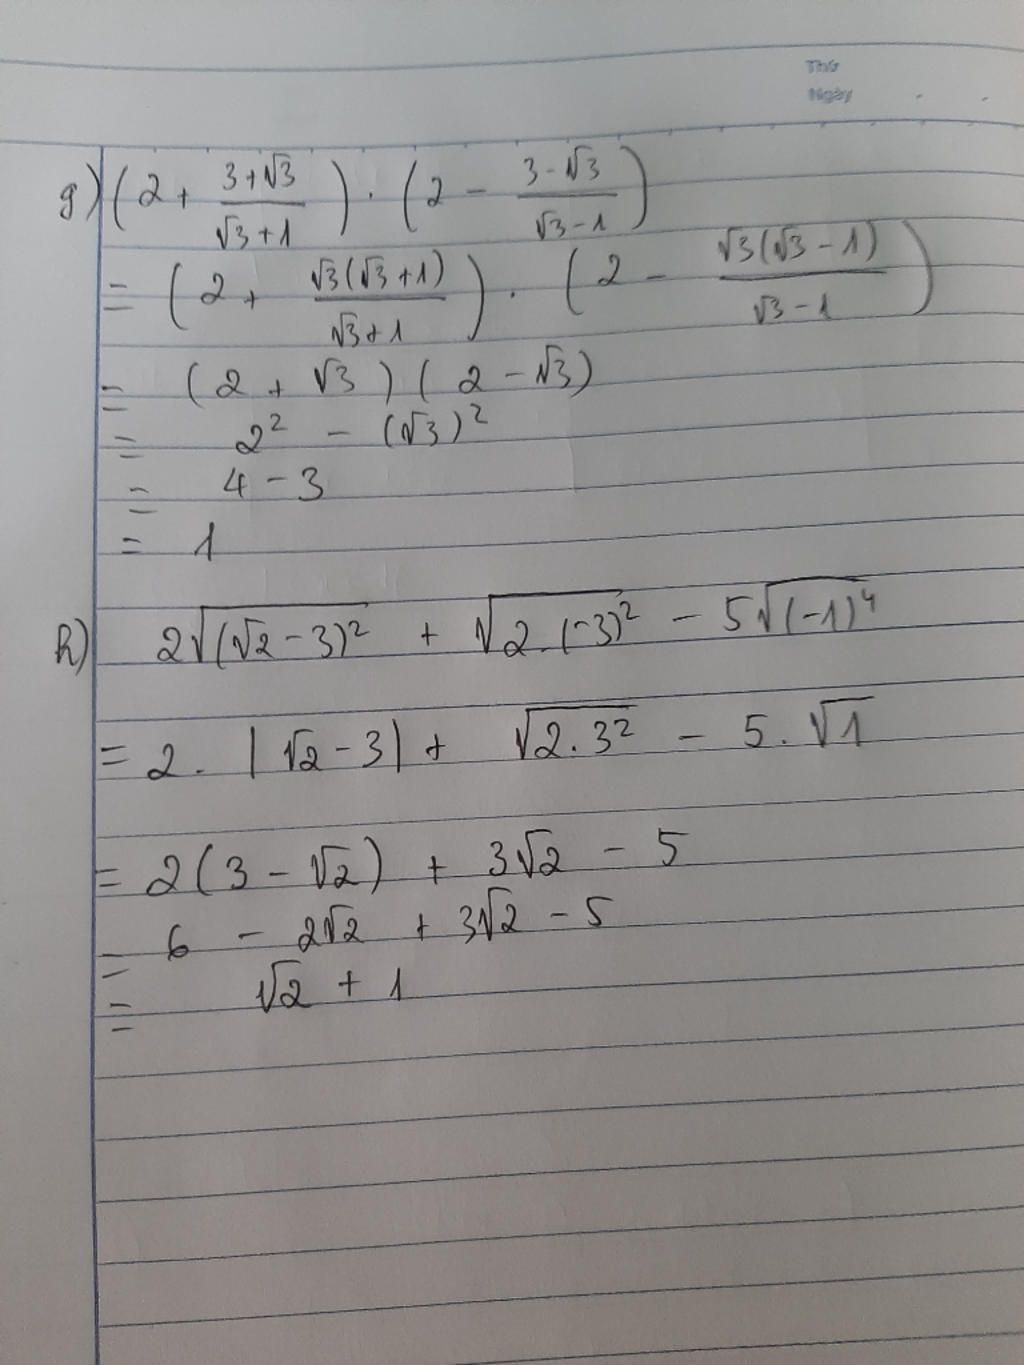 Thứ
Ngày
g) (2 + (3+√3)/(√3+1)) . (2 - (3-√3)/(√3-1))
= (2 + √3(√3+1)/(√3+1)) . (2 - √3(√3-1)/(√3-1))
= (2 + √3)(2 - √3)
= 2² - (√3)²
= 4 - 3
= 1
h) 2√((√2-3)²) + √(2.(-3)²) - 5√((-1)⁴)
= 2. |√2-3| + √(2.3²) - 5.√1
= 2(3-√2) + 3√2 - 5
= 6 - 2√2 + 3√2 - 5
= √2 + 1